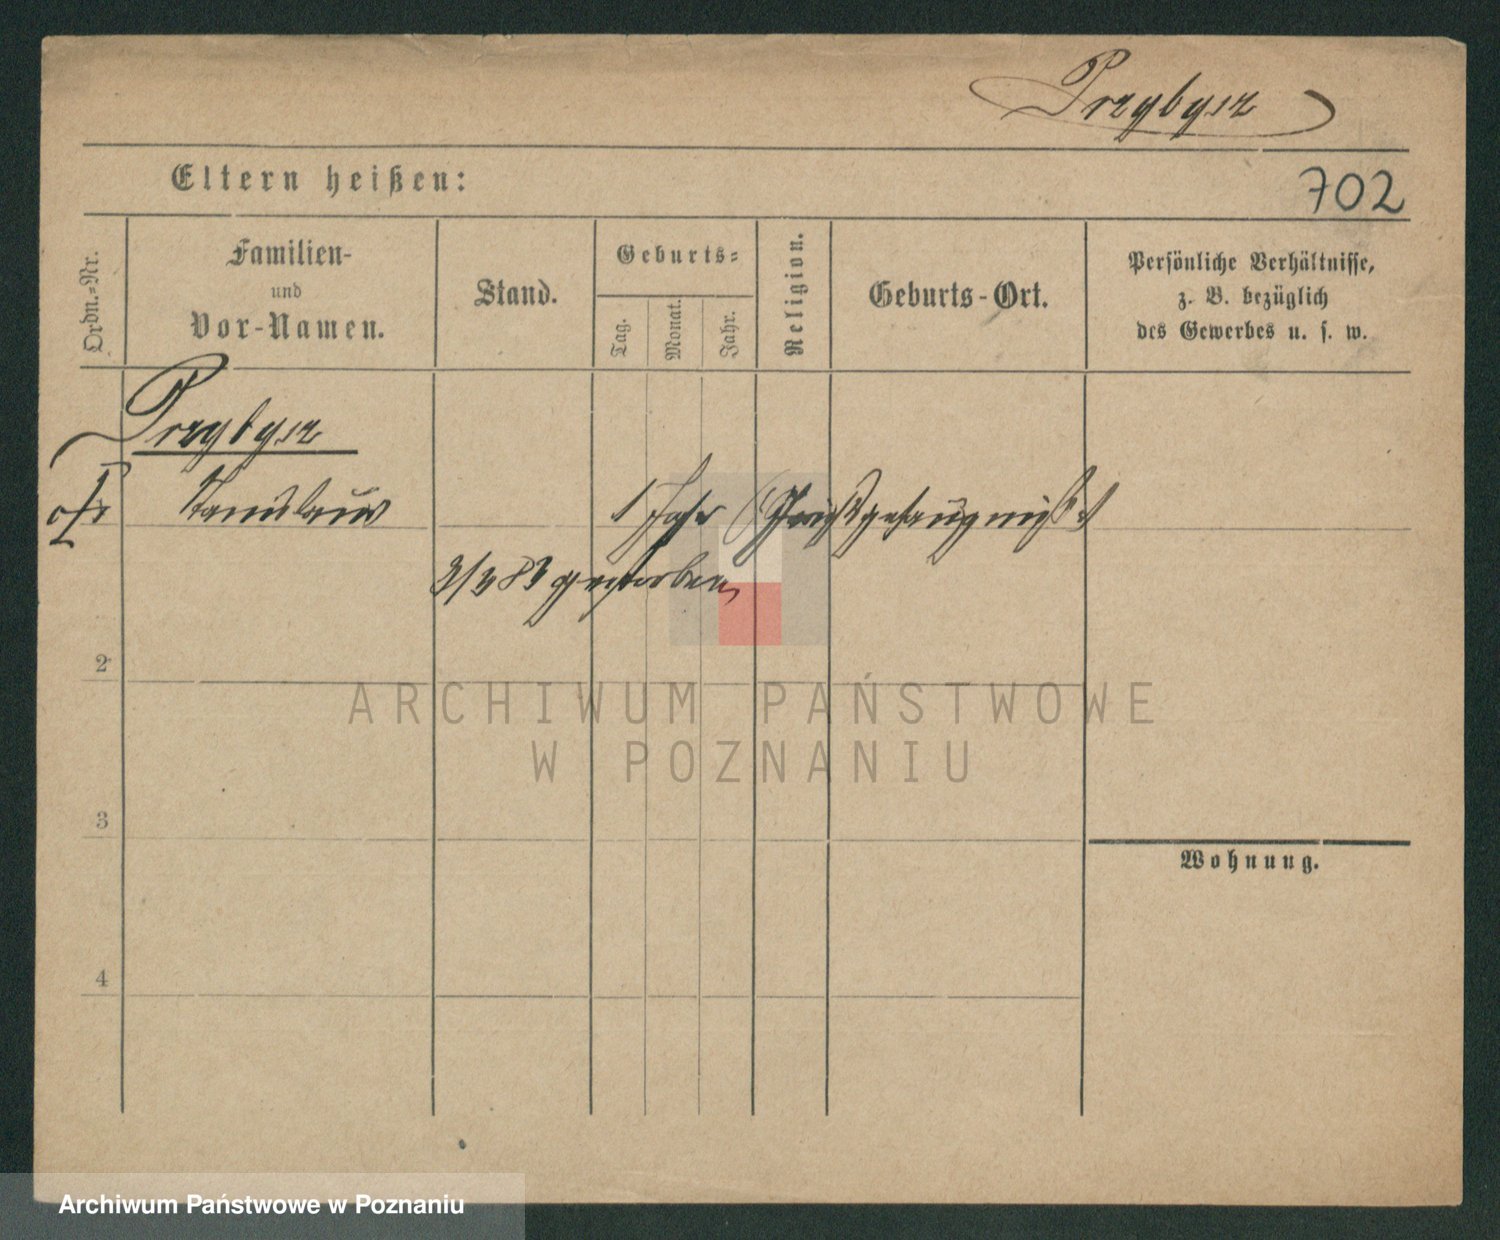 Przybysz
Eltern heißen:
702
Ordn.-Nr.
Familien-
und
Vor-Namen.
Stand.
Geburts-
Tag.
Monat.
Jahr.
Religion.
Geburts-Ort.
Persönliche Verhältnisse,
z. B. bezüglich
des Gewerbes u. s. w.
Przybysz
Stanislaus 1 Jahr
gestorben
2
3
4
Wohnung.
ARCHIWUM PAŃSTWOWE
W POZNANIU
Archiwum Państwowe w Poznaniu